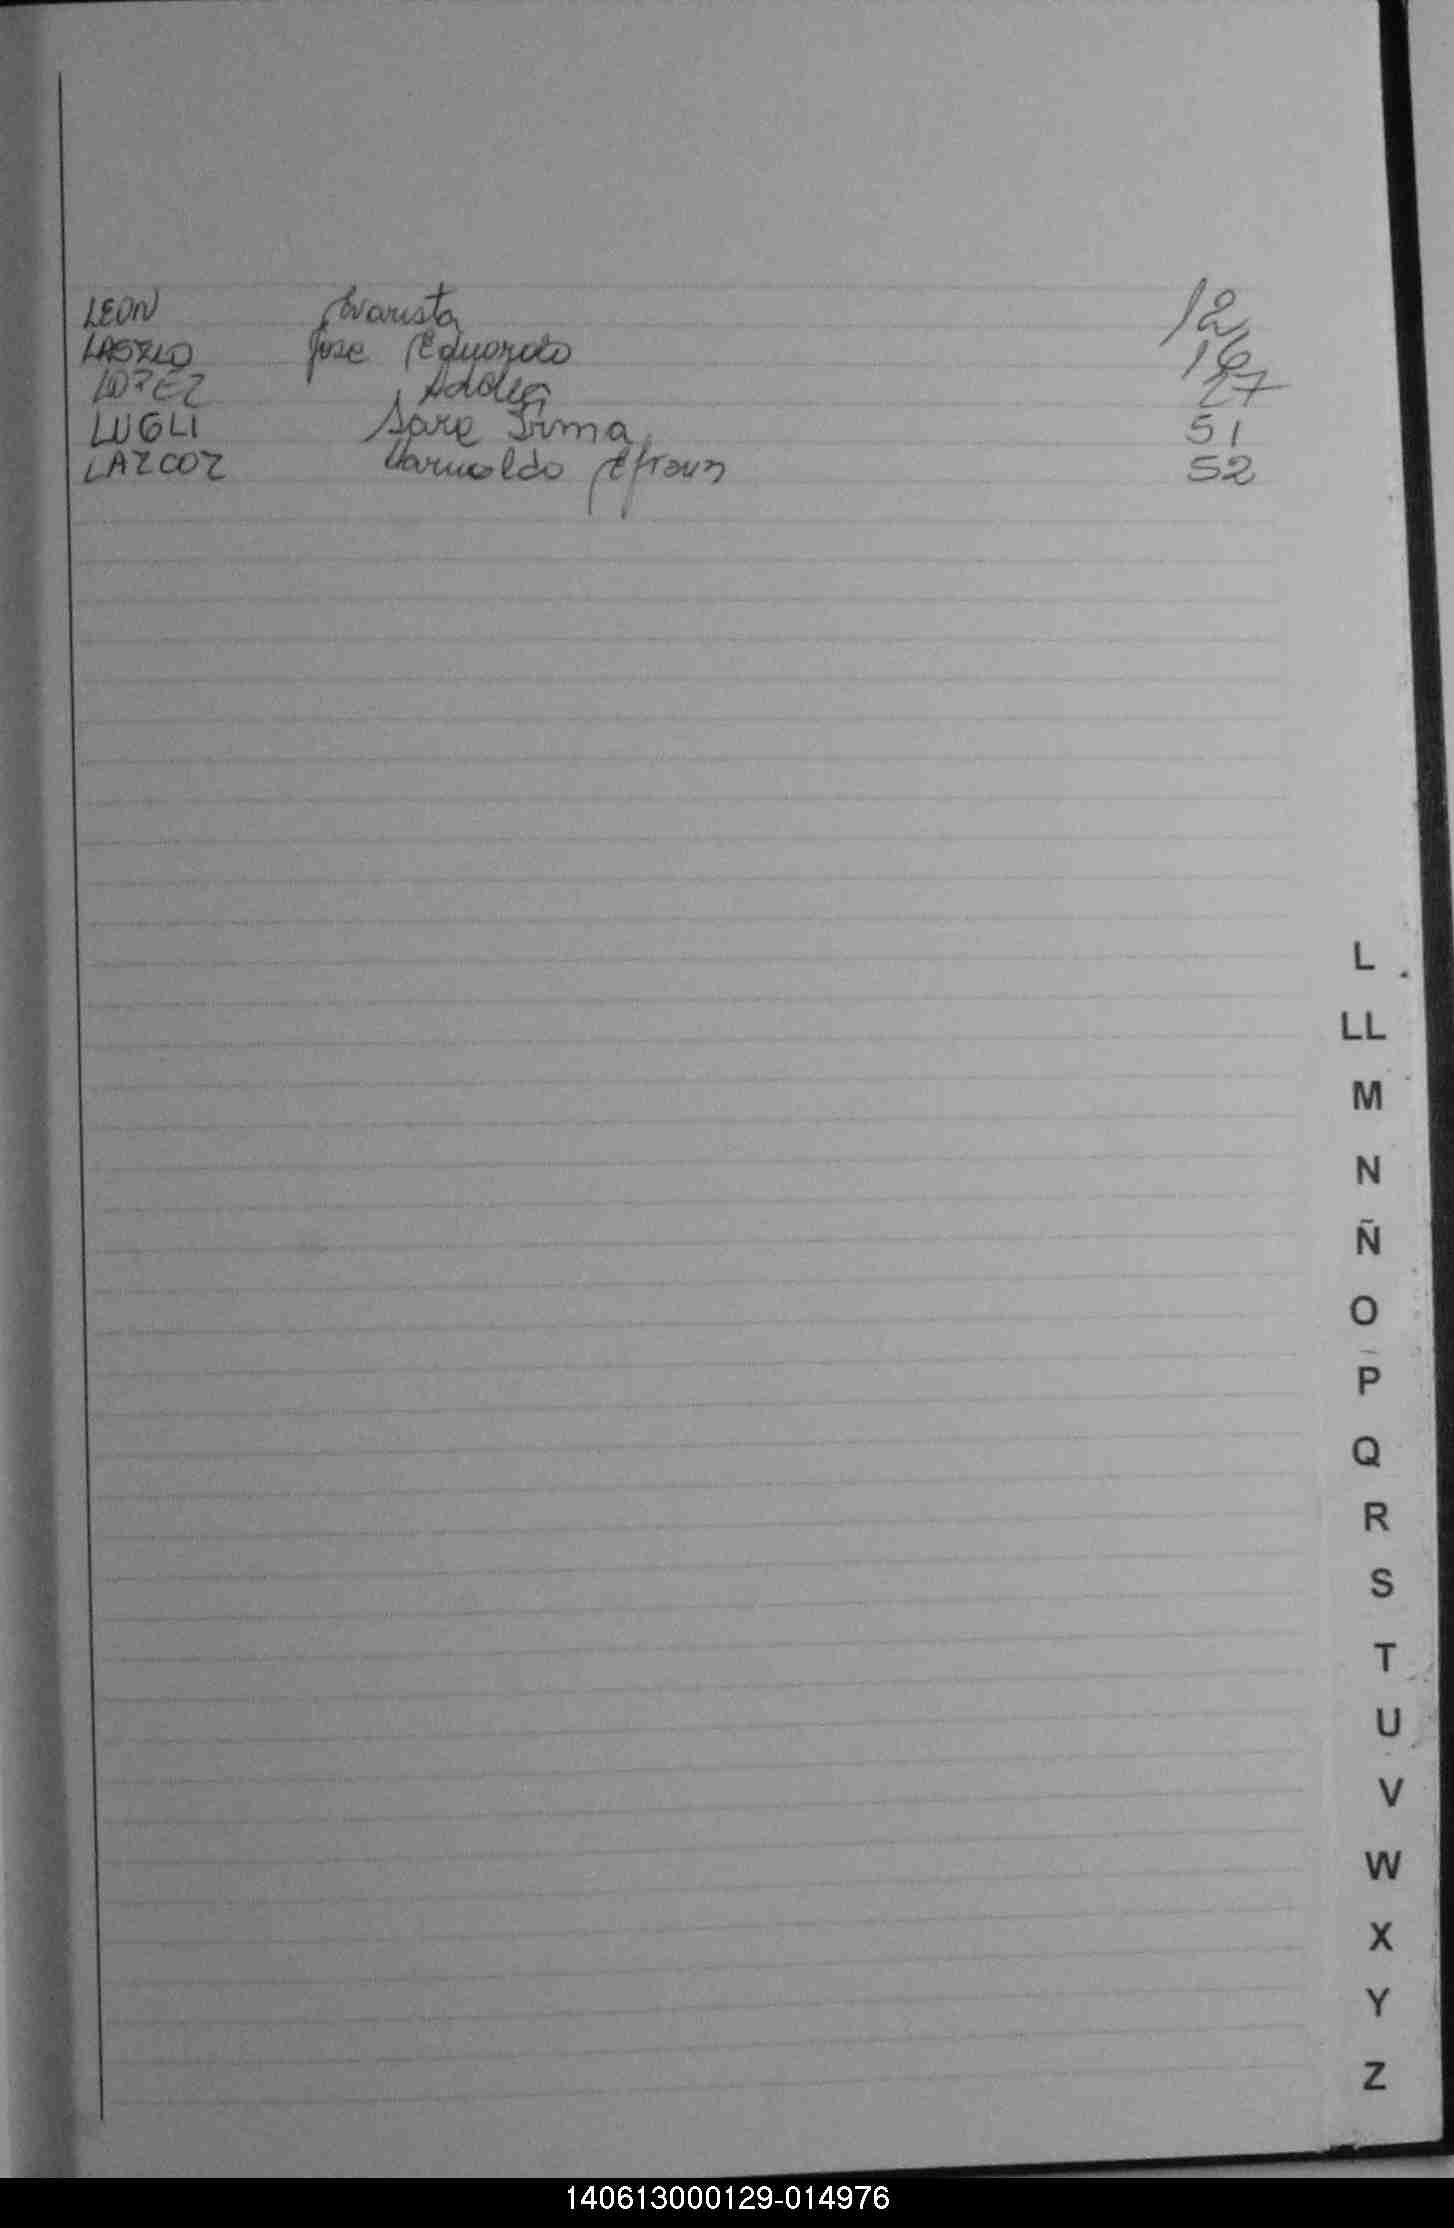 LEON Evarista 12
LASZLO Jose Eduardo 16
LOPEZ 27
LUGLI Sara Irma 51
LAZCOZ Efrain 52
L
LL
M
N
Ñ
O
P
Q
R
S
T
U
V
W
X
Y
Z
140613000129-014976